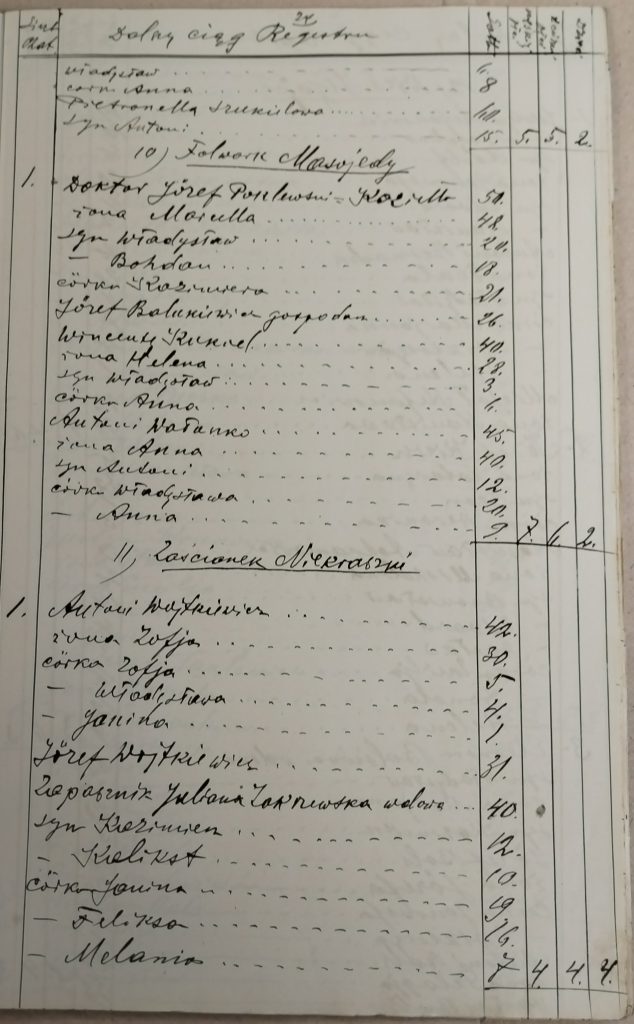 24
Dalszy ciąg Registru
Lat
Władysław 6.
córka Anna 8
Pietronella Szukielowa 40.
syn Antoni 15. 5. 5. 2.
10) Folwark Masojedy
1. Doktor Józef Poklewski-Koziełł 50.
żona Marella 48.
syn Władysław 20.
— Bohdan 18.
córka Kazimiera 21.
Józef Balukiewicz gospodarz 26.
Wincenty Kukiel 40.
żona Helena 28.
syn Władysław 3.
córka Anna 6.
Antoni 45.
żona Anna 40.
syn Antoni 12.
córka Władysława 20.
— Anna 9. 7. 6. 2.
11) Zaścianek Niekraszni
1. Antoni Wojtkiewicz 42.
żona Zofja 30.
córka Zofja 5.
— Władysława 4.
— Janina 1.
Józef Wojtkiewicz 31.
Zapasznik Juljana Zakrzewska wdowa 40.
syn Kazimierz 12.
— Kalikst 10.
córka Janina 19
— Feliksa 16.
— Melania 7 4. 4. 4.